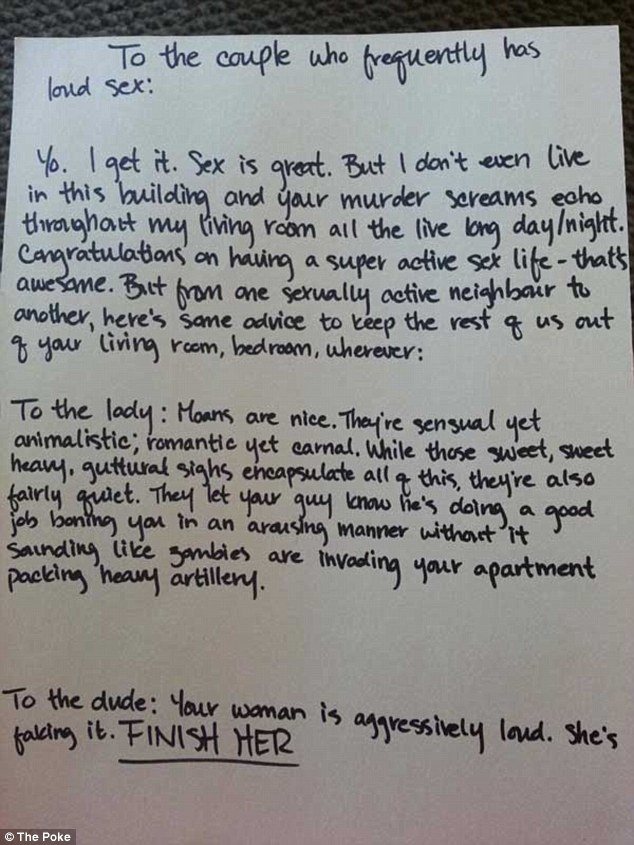 To the couple who frequently has
loud sex:
Yo. I get it. Sex is great. But I don't even live
in this building and your murder screams echo
throughout my living room all the live long day/night.
Congratulations on having a super active sex life - that's
awesome. But from one sexually active neighbour to
another, here's some advice to keep the rest of us out
of your living room, bedroom, wherever:
To the lady: Moans are nice. They're sensual yet
animalistic; romantic yet carnal. While those sweet, sweet
heavy, guttural sighs encapsulate all of this, they're also
fairly quiet. They let your guy know he's doing a good
job boning you in an arousing manner without it
sounding like zombies are invading your apartment
packing heavy artillery.
To the dude: Your woman is aggressively loud. She's
faking it. FINISH HER
© The Poke